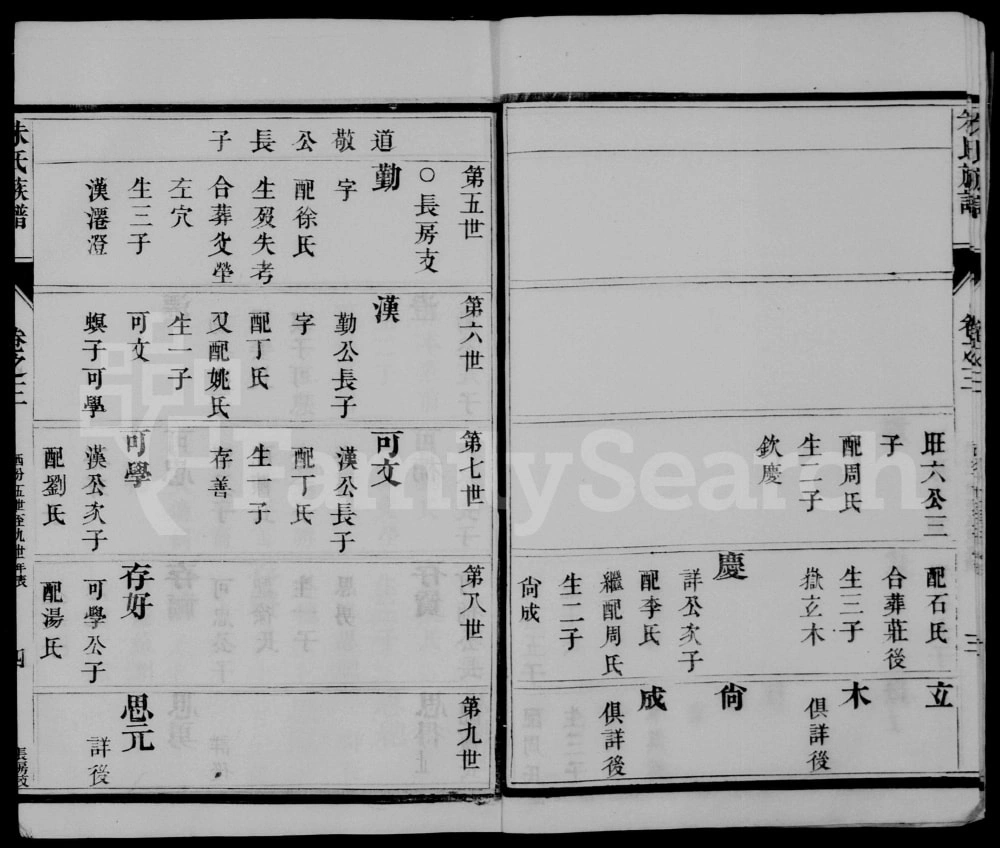 朱氏族譜
卷之三
三
旺六公三
子
配周氏
生二子
欽慶
配石氏
合葬莊後
生三子
嶽立木
慶
詳公次子
配李氏
繼配周氏
生二子
尙成
立
木
俱詳後
尙
成
俱詳後
第五世
○長房支
道敬公長子
勤
字
配徐氏
生歿失考
合葬父塋
左穴
生三子
漢潘澄
第六世
漢
勤公長子
字
配丁氏
又配姚氏
生一子
可文
螟子可學
第七世
可文
漢公長子
配丁氏
生一子
存善
可學
漢公次子
配劉氏
第八世
存好
可學公子
配湯氏
第九世
思元
詳後
朱氏族譜
卷之三
酉分五世至九世年表
四
長房支
FamilySearch